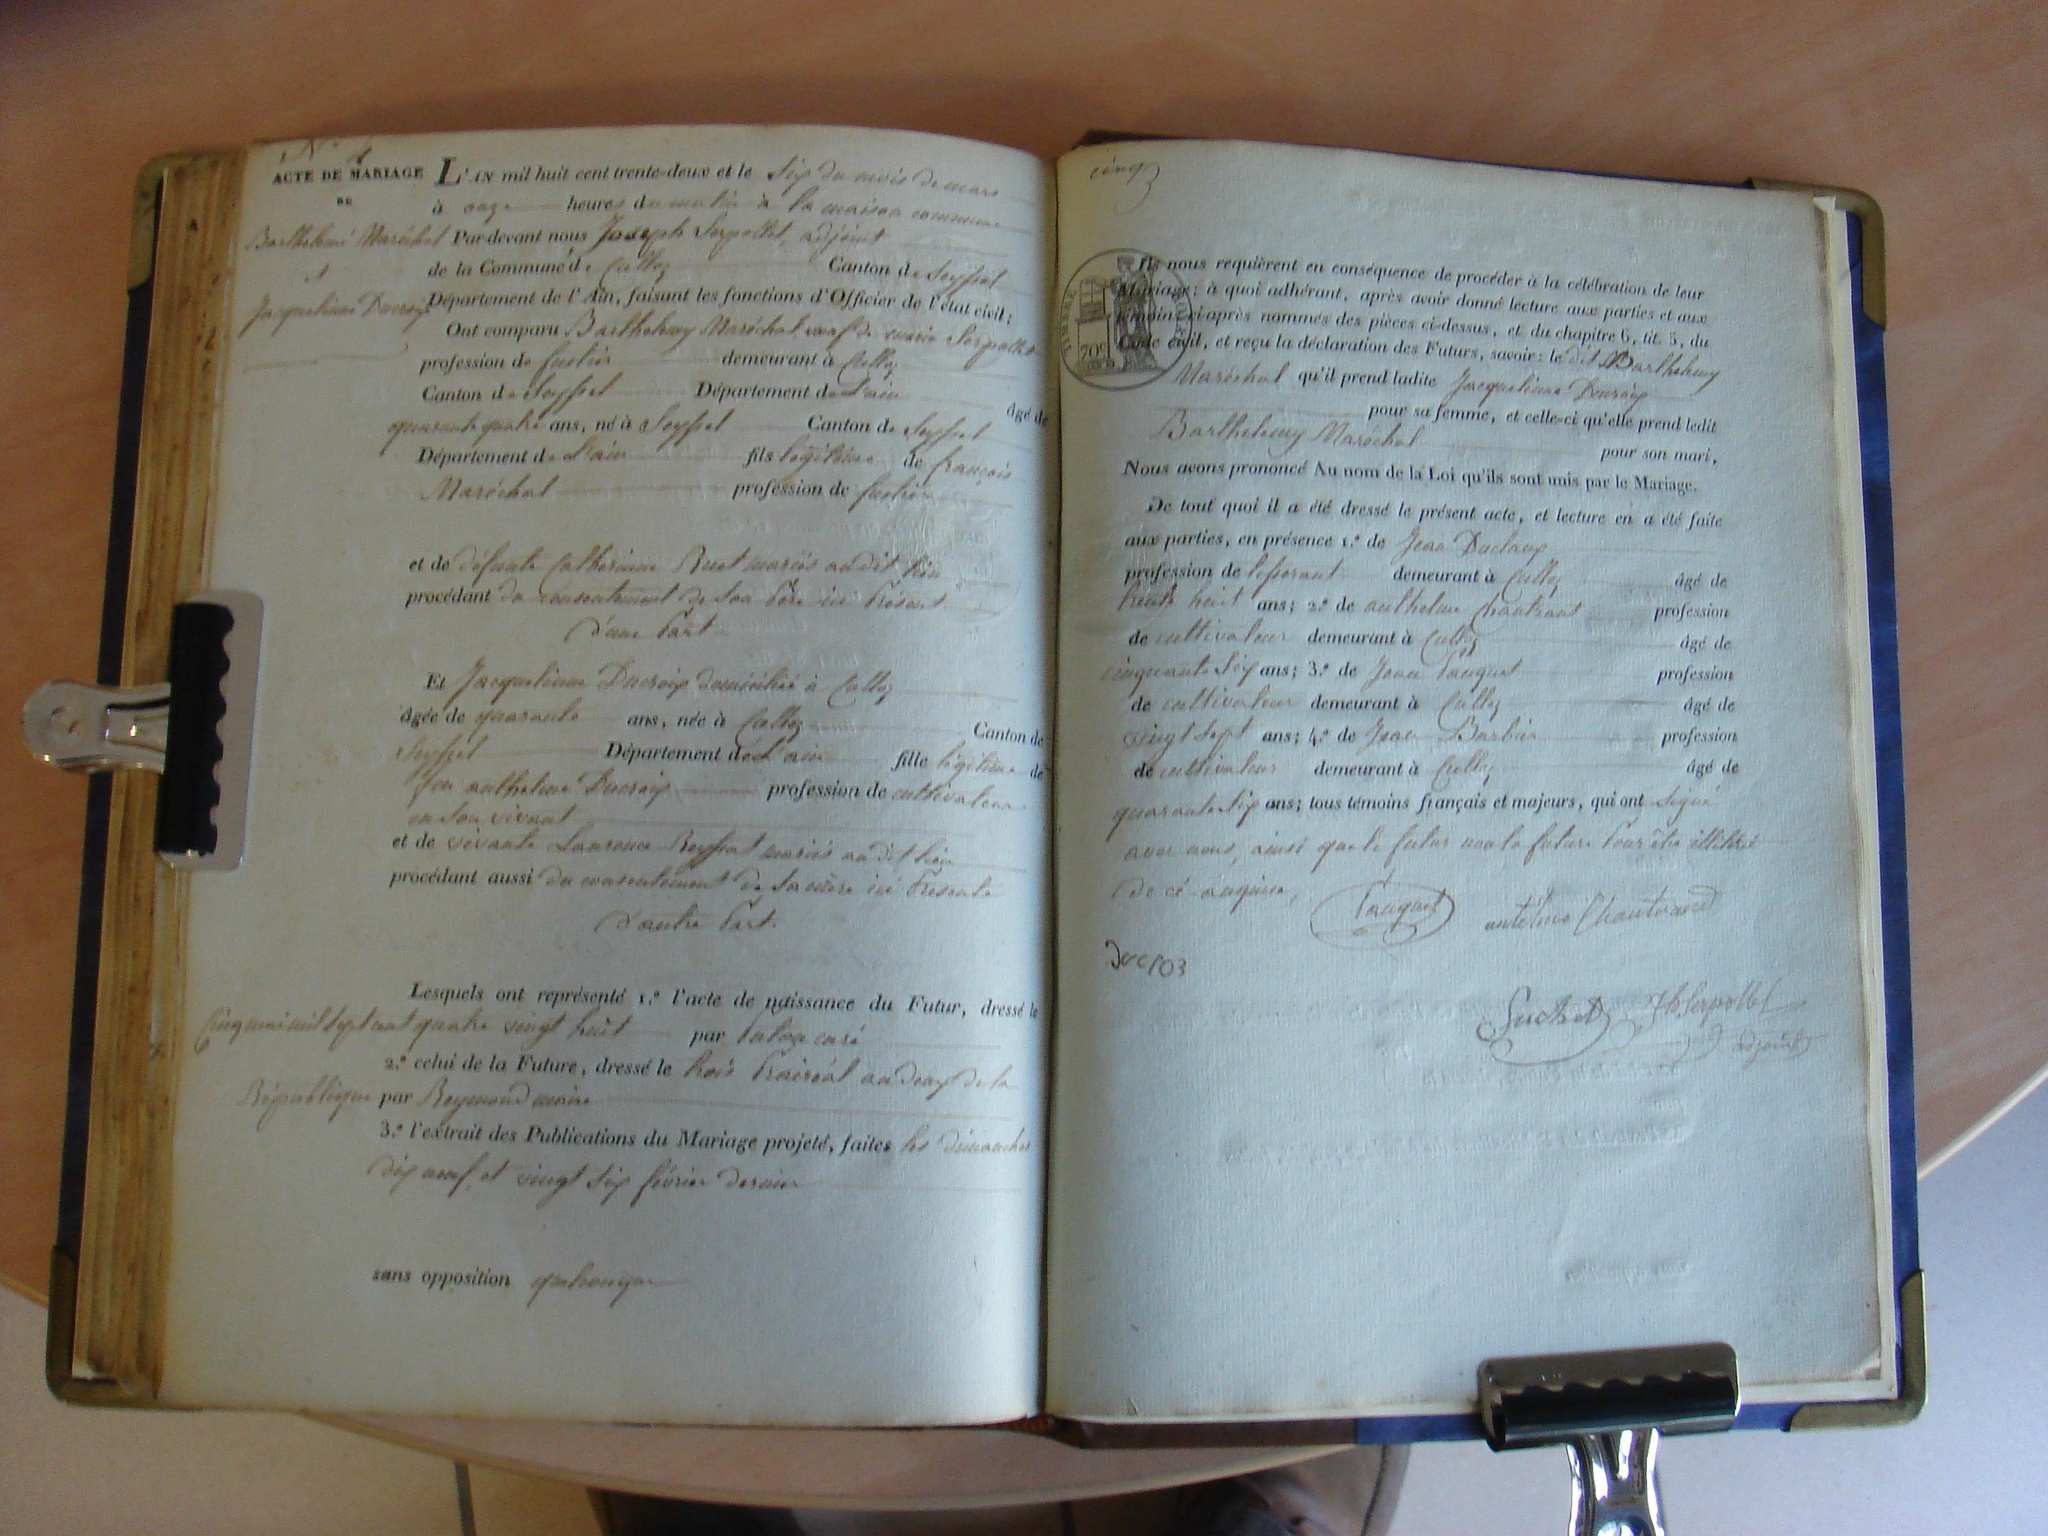 N° 4
ACTE DE MARIAGE
DE
Barthelemi Maréchal
et
Jacqueline Ducroix
L'AN mil huit cent trente-deux et le six du mois de mars
à onze heures du matin à la maison commune
Par-devant nous Joseph Serpollet, adjoint
de la Commune de Culloz Canton de Seyssel
Département de l'Ain, faisant les fonctions d'Officier de l'état civil;
Ont comparu Barthelemy Maréchal, veuf de marie Serpollet
profession de demeurant à Culloz
Canton de Seyssel Département de L'ain âgé de
quarante quatre ans, né à Seyssel Canton de Seyssel
Département de L'ain fils légitime de françois
Maréchal profession de
et de défunte Catherine mariés au dit lieu
procédant du consentement de son Père ici Présent
d'une Part.
Et Jacqueline Ducroix domiciliée à Culloz
âgée de quarante ans, née à Culloz Canton de
Seyssel Département de L'ain fille légitime de
feu anthelme Ducroix profession de cultivateur
en son vivant
et de vivante Laurence mariés au dit lieu
procédant aussi du consentement de sa mère ici Présente
d'autre Part.
Lesquels ont représenté 1.° l'acte de naissance du Futur, dressé le
Cinq mai mil sept cent quatre vingt huit par curé
2.° celui de la Future, dressé le trois Prairéal an deux de la
République par Reymond maire
3.° l'extrait des Publications du Mariage projeté, faites les dimanches
dix neuf et vingt six février dernier
sans opposition quelconque
cinq
TIMBRE ROYAL
70c
Ils nous requièrent en conséquence de procéder à la célébration de leur
Mariage; à quoi adhérant, après avoir donné lecture aux parties et aux
témoins ci-après nommés des pièces ci-dessus, et du chapitre 6, tit. 5, du
Code civil, et reçu la déclaration des Futurs, savoir: le dit Barthelemy
Maréchal qu'il prend ladite Jacqueline Ducroix
pour sa femme, et celle-ci qu'elle prend ledit
Barthelemy Maréchal pour son mari,
Nous avons prononcé Au nom de la Loi qu'ils sont unis par le Mariage.
De tout quoi il a été dressé le présent acte, et lecture en a été faite
aux parties, en présence 1.° de Jean Duclaux
profession de tisserant demeurant à Culloz âgé de
trente huit ans; 2.° de anthelme Chautrant profession
de cultivateur demeurant à Culloz âgé de
cinquante six ans; 3.° de Jean Pauquet profession
de cultivateur demeurant à Culloz âgé de
vingt sept ans; 4.° de Jean Barbier profession
de cultivateur demeurant à Culloz âgé de
quarante six ans; tous témoins français et majeurs, qui ont signé
avec nous, ainsi que le futur non la future Pour être illitéré
de ce enquise,
Pauquet
antelme Chautrand
Jh Serpollet
adjoint